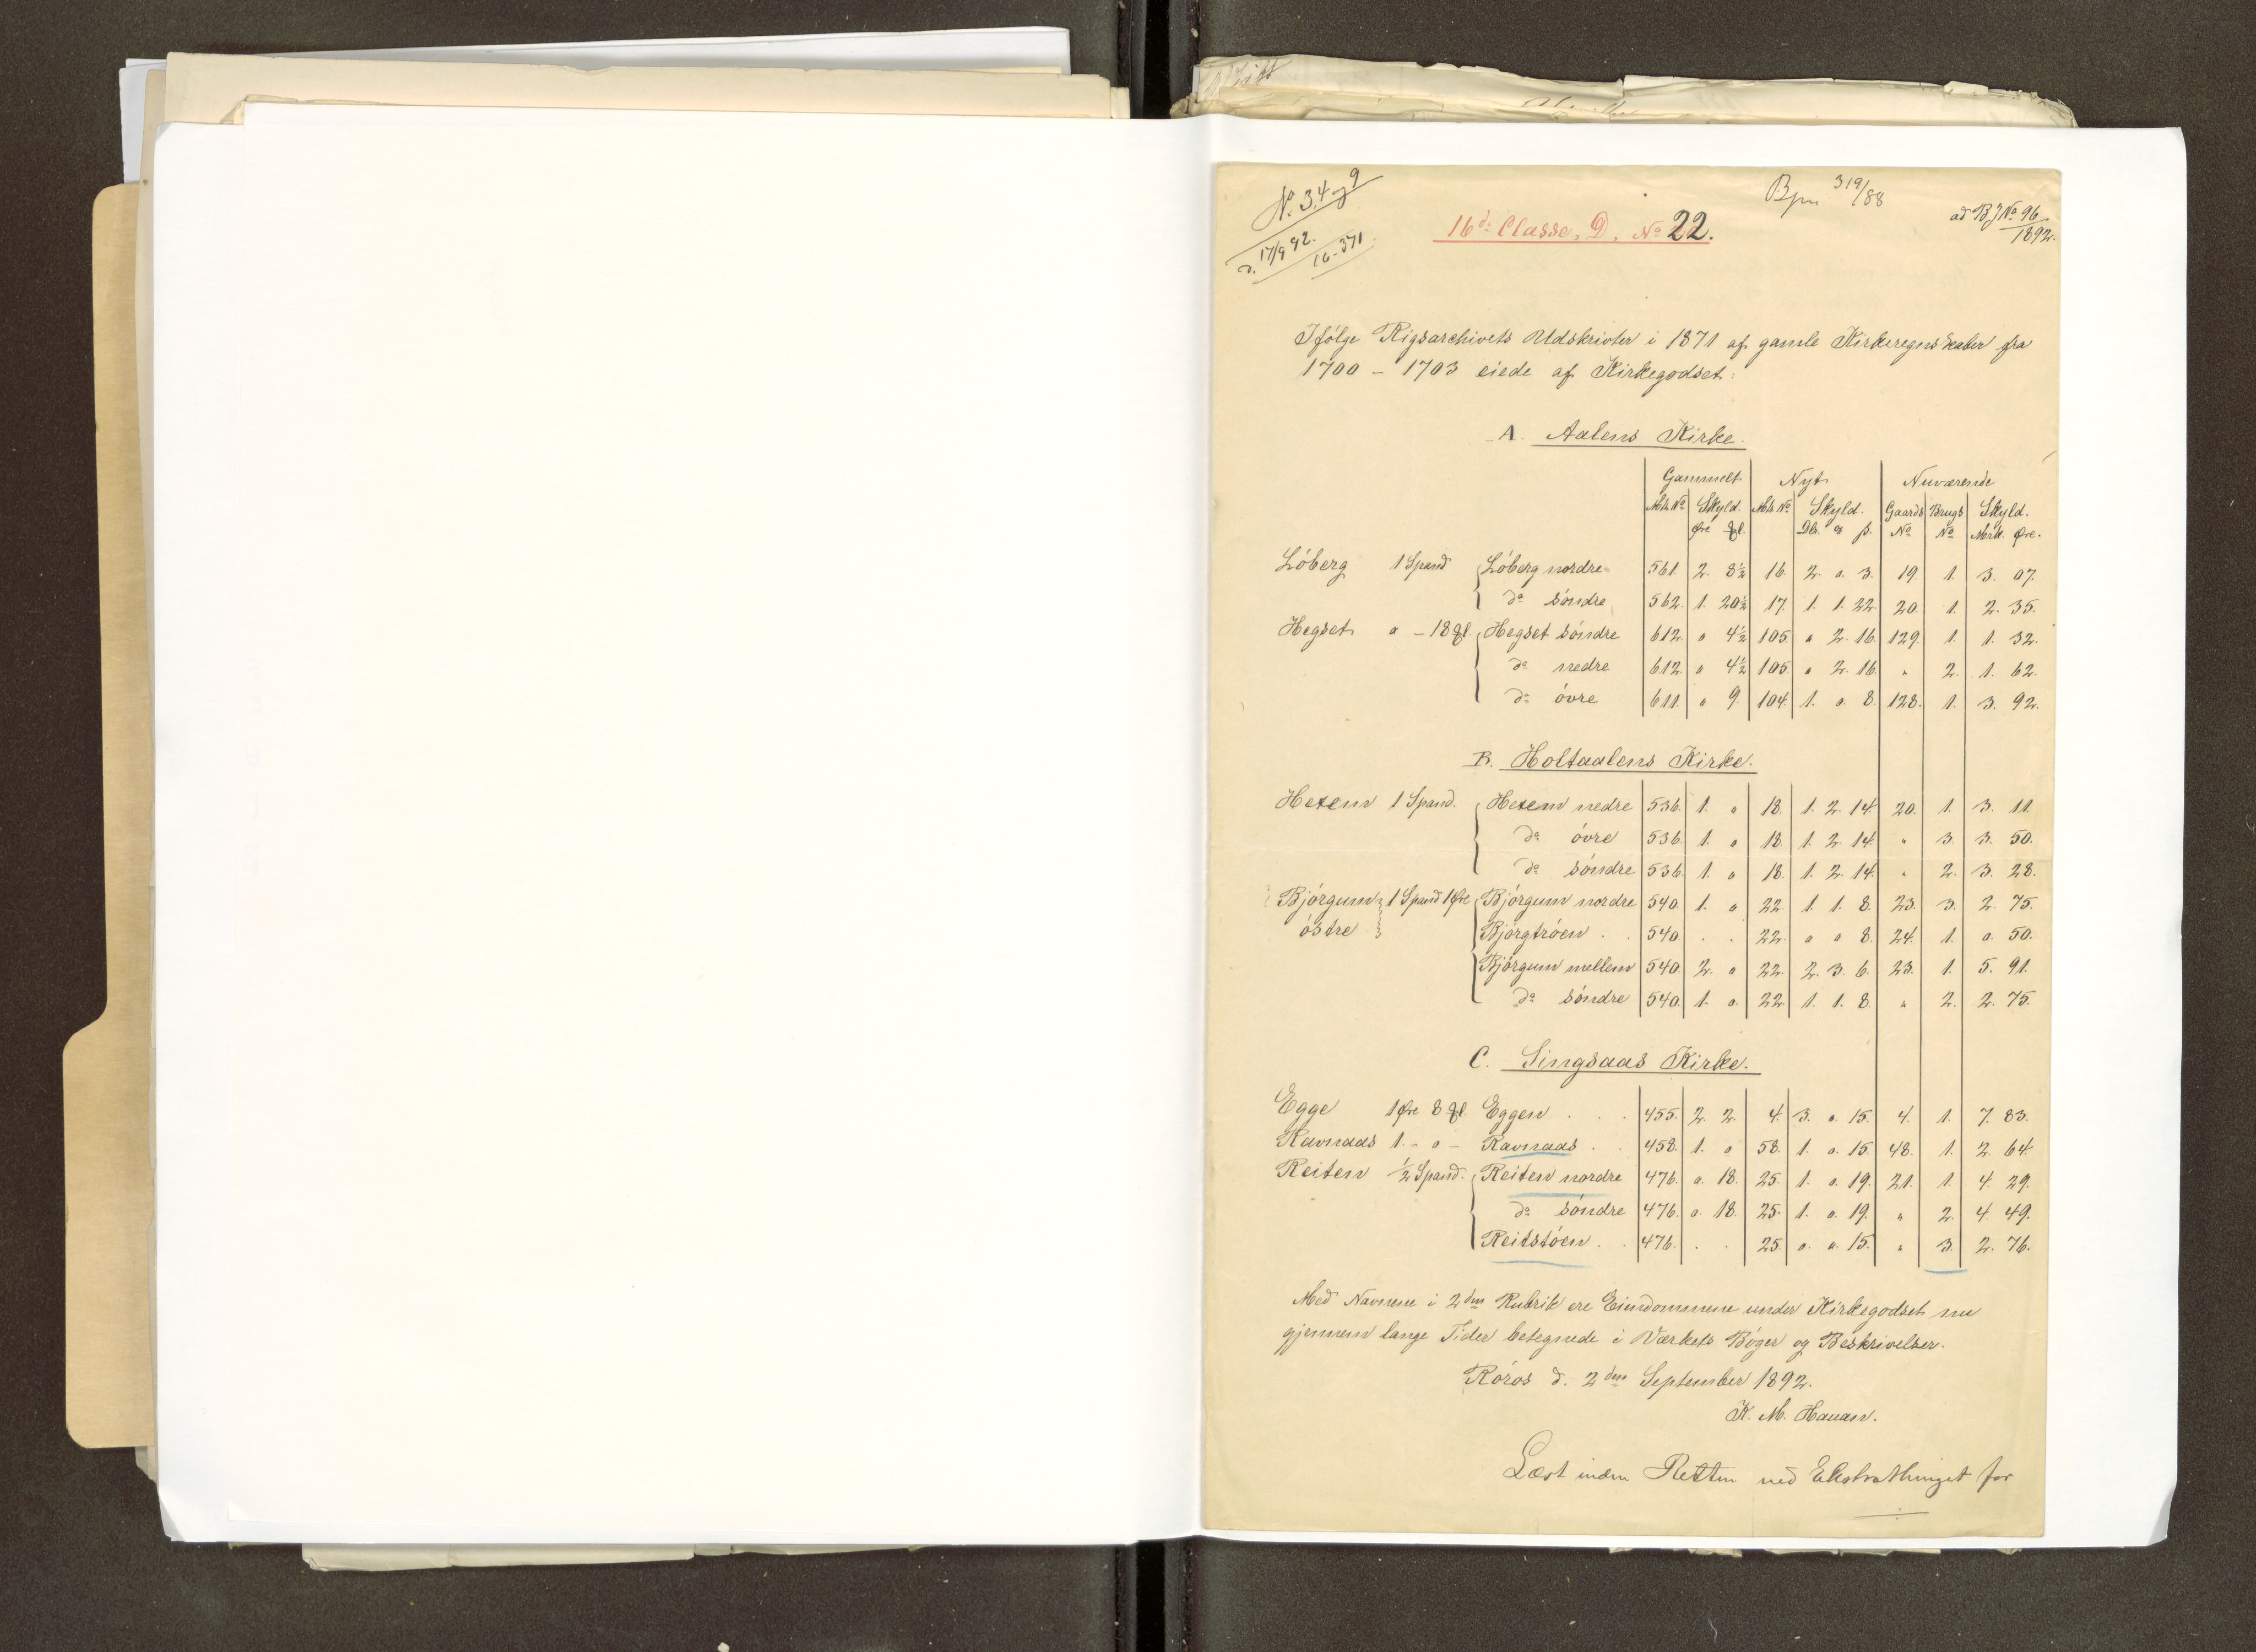 No. 3, 4 og 9
d. 17/9 92.
16-371.
16de Classe, D. No 22.
319/88
ad B J No 96/1892.
Ifölge Rigsarchivets Udskrivter i 1871 af gamle Kirkeregnskaber fra
1700 - 1703 eiede af Kirkegodset:
A. Aalens Kirke.
Gammelt Nyt Nuværende
Mtr. No Skyld. Mtr. No Skyld. Gaards Brugs Skyld.
Øre gl. Dlr. o ß. No No Mrk. Øre.
Löberg 1 Spand Löberg nordre 561. 2. 8½ 16. 2. o. 3. 19. 1. 3. 07.
do söndre 562. 1. 20½ 17. 1. 1. 22. 20. 1. 2. 35.
Hegset o - 18 gl. Hegset söndre 612. o 4½ 105. o 2. 16. 129. 1. 1. 32.
do nedre 612. o 4½ 105. o 2. 16. " 2. 1. 62.
do övre 611. o 9. 104. 1. o. 8. 128. 1. 3. 92.
B. Holtaalens Kirke.
Hexem 1 Spand. Hexem nedre 536. 1. o 18. 1. 2. 14. 20. 1. 3. 11.
do övre 536. 1. o 18. 1. 2. 14. " 3. 3. 50.
do söndre 536. 1. o 18. 1. 2. 14. " 2. 3. 28.
Björgum 1 Spand 1 Øre Björgum nordre 540. 1. o 22. 1. 1. 8. 23. 3. 2. 75.
östre Björgtröen . . 540. . . 22. o o 8. 24. 1. o. 50.
Björgum mellem 540. 2. o 22. 2. 3. 6. 23. 1. 5. 91.
do söndre 540. 1. o. 22. 1. 1. 8. " 2. 2. 75.
C. Singsaas Kirke.
Egge 1 Øre 8 gl. Eggen . . . 455. 2. 2. 4. 3. o. 15. 4. 1. 7. 83.
Ravnaas 1. - o - Ravnaas . . 458. 1. o 58. 1. o. 15. 48. 1. 2. 64.
Reiten ½ Spand. Reiten nordre 476. o. 18. 25. 1. o. 19. 21. 1. 4. 29.
do söndre 476. o. 18. 25. 1. o. 19. " 2. 4. 49.
Reitstöen . . 476. . . 25. o. o. 15. " 3. 2. 76.
Med Navnene i 2den Rubrik ere Eiendommene under Kirkegodset nu
gjennem lange Tider betegnede i Værkets Böger og Beskrivelser.
Röros d. 2den September 1892.
K. M. Hauan.
Læst inden Retten ved Ekstrathinget for